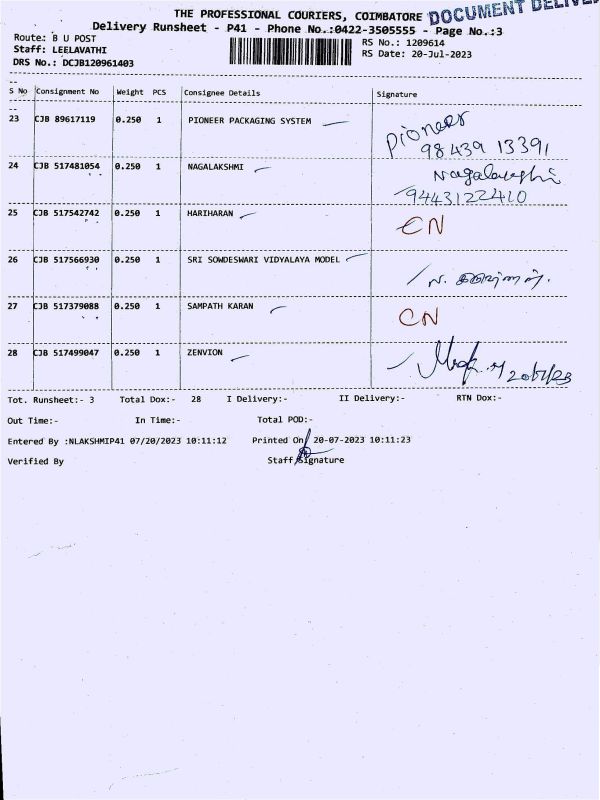 THE PROFESSIONAL COURIERS, COIMBATORE DOCUMENT
Delivery Runsheet - P41 - Phone No.:0422-3505555 - Page No.:3
Route: B U POST
RS No.: 1209614
Staff: LEELAVATHI
RS Date: 20-Jul-2023
DRS No.: DCJB120961403
S No Consignment No Weight PCS Consignee Details Signature
23 CJB 89617119 0.250 1 PIONEER PACKAGING SYSTEM Pioneer
98439 13391
24 CJB 517481054 0.250 1 NAGALAKSHMI
9443122410
25 CJB 517542742 0.250 1 HARIHARAN CN
26 CJB 517566930 0.250 1 SRI SOWDESWARI VIDYALAYA MODEL
27 CJB 517379088 0.250 1 SAMPATH KARAN CN
28 CJB 517499047 0.250 1 ZENVION
Tot. Runsheet:- 3 Total Dox:- 28 I Delivery:- II Delivery:- RTN Dox:-
Out Time:- In Time:- Total POD:-
Entered By :NLAKSHMIP41 07/20/2023 10:11:12 Printed On 20-07-2023 10:11:23
Verified By Staff Signature